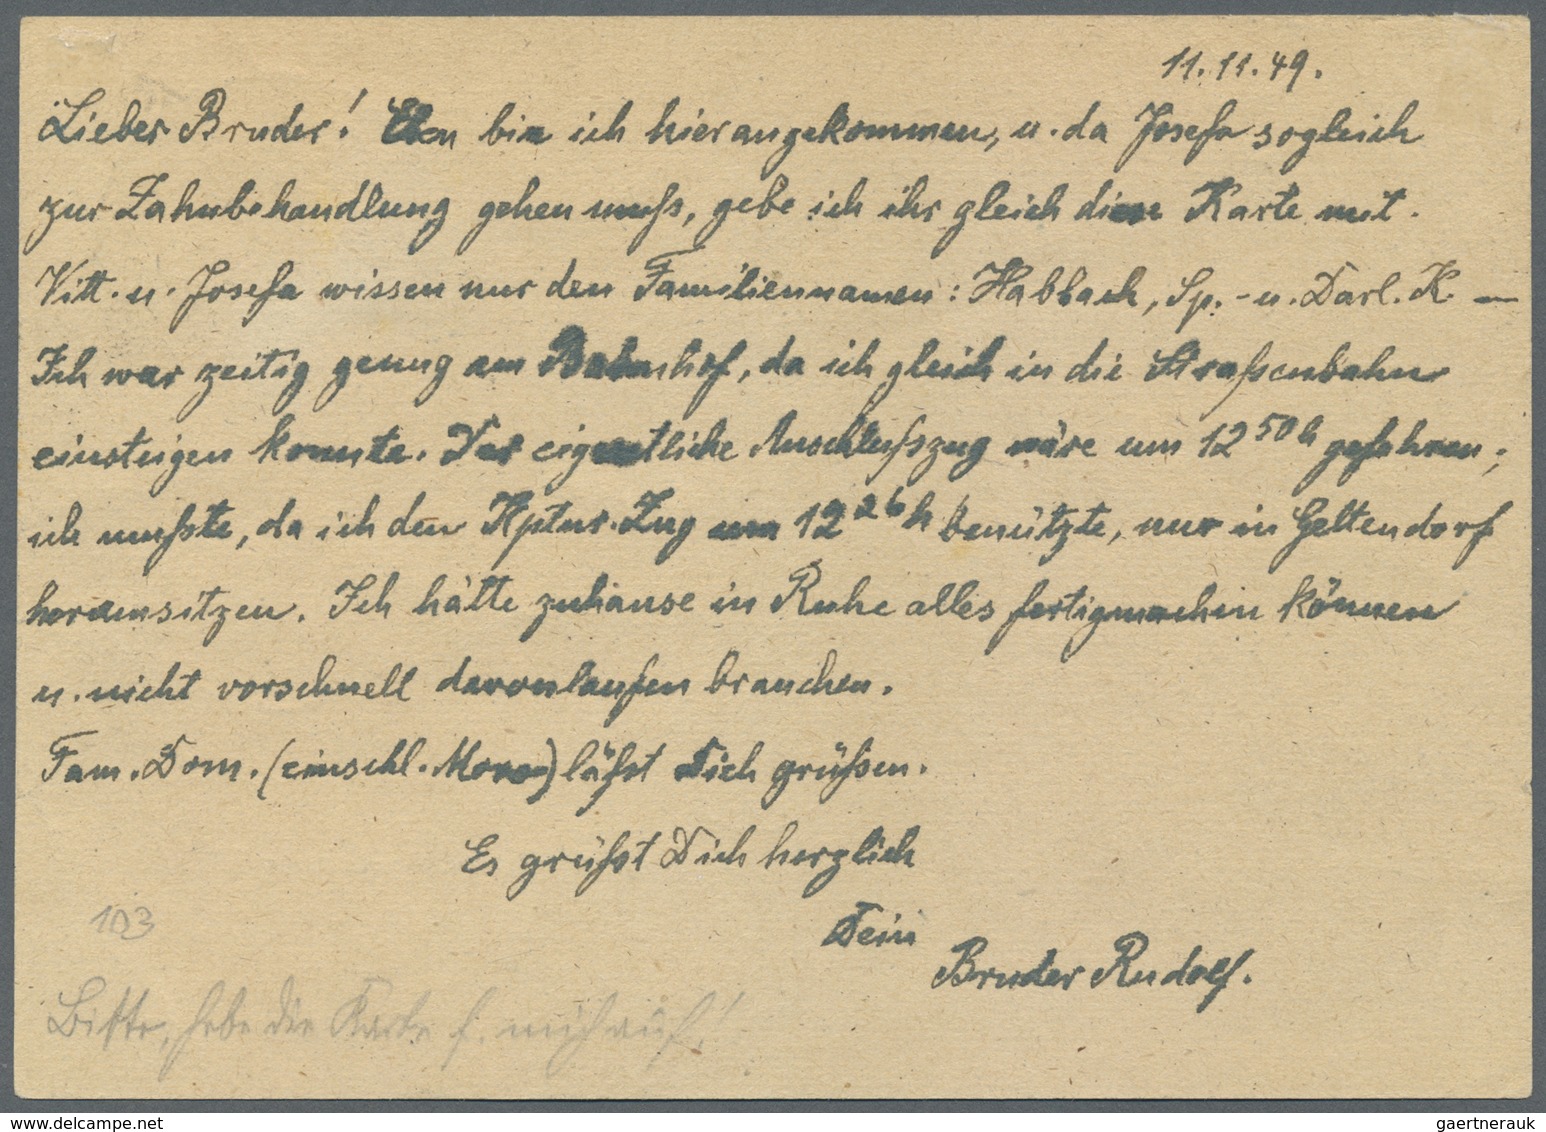 11.11.49.
Lieber Bruder! Eben bin ich hier angekommen, u. da Josefa sogleich
zur Zahnbehandlung gehen muß, gebe ich ihr gleich diese Karte mit.
Vitt. u. Josefa wissen nur den Familiennamen: Habbach, Sp.- u. Darl. K. —
Ich war zeitig genug am Bahnhof, da ich gleich in die Straßenbahn
einsteigen konnte. Der eigentliche Anschlußzug wäre um 12 50 h gefahren;
ich mußte, da ich den Zug um 12 26 h benützte, nur in Geltendorf
heraumsitzen. Ich hätte zuhause in Ruhe alles fertigmachen können
u. nicht vorschnell davonlaufen brauchen.
Fam. Dom. (einschl. ) läßt Dich grüßen.
Es grüßt Dich herzlich
Dein
Bruder Rudolf.
103
Bitte, hebe die Karte f. mich auf!
gaertnerauk